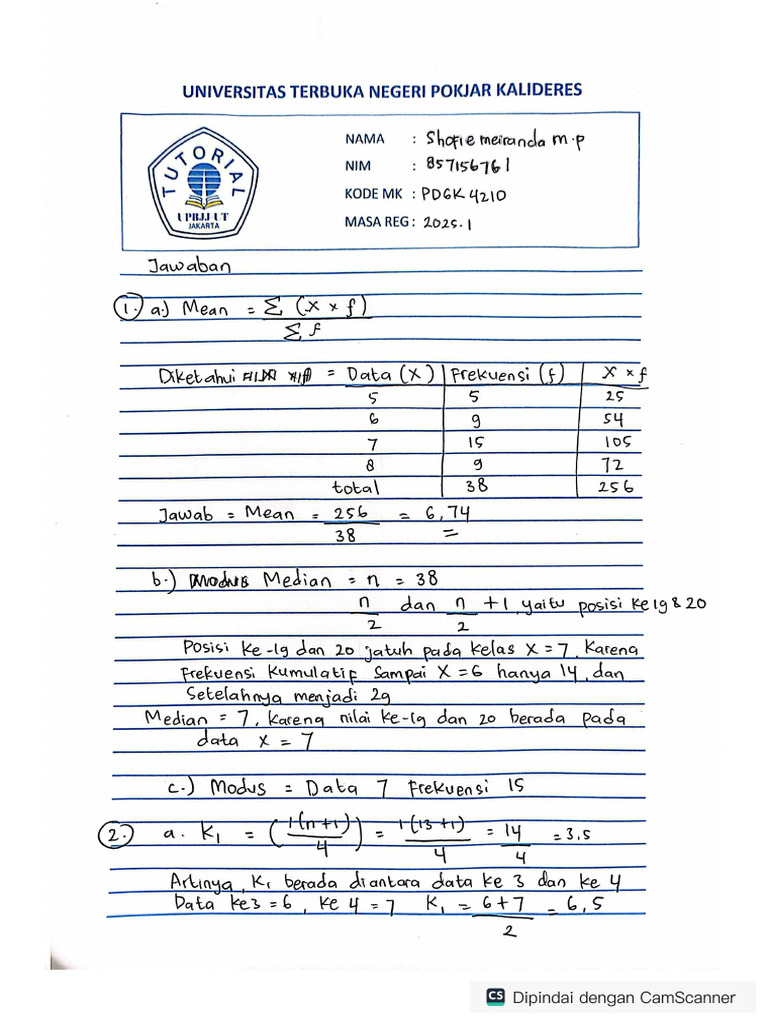 UNIVERSITAS TERBUKA NEGERI POKJAR KALIDERES
TUTORIAL
UPBJJ UT
JAKARTA
NAMA : Shofie meiranda m.p
NIM : 857156761
KODE MK : PDGK 4210
MASA REG : 2025.1
Jawaban
1. a.) Mean = Σ (X × f)
Σ f
Diketahui = Data (X) Frekuensi (f) X × f
5 5 25
6 9 54
7 15 105
8 9 72
total 38 256
Jawab = Mean = 256 = 6,74
38
b.) Median = n = 38
n dan n + 1, yaitu posisi ke 19 & 20
2 2
Posisi ke-19 dan 20 jatuh pada kelas X = 7, karena
Frekuensi kumulatif sampai X = 6 hanya 14, dan
setelahnya menjadi 29
Median = 7, karena nilai ke-19 dan 20 berada pada
data X = 7
c.) Modus = Data 7 Frekuensi 15
2. a. K1 = (1(n+1)) = 1(13+1) = 14 = 3,5
4 4 4
Artinya, K1 berada diantara data ke 3 dan ke 4
Data ke3 = 6, ke 4 = 7 K1 = 6+7 = 6,5
2
CS Dipindai dengan CamScanner